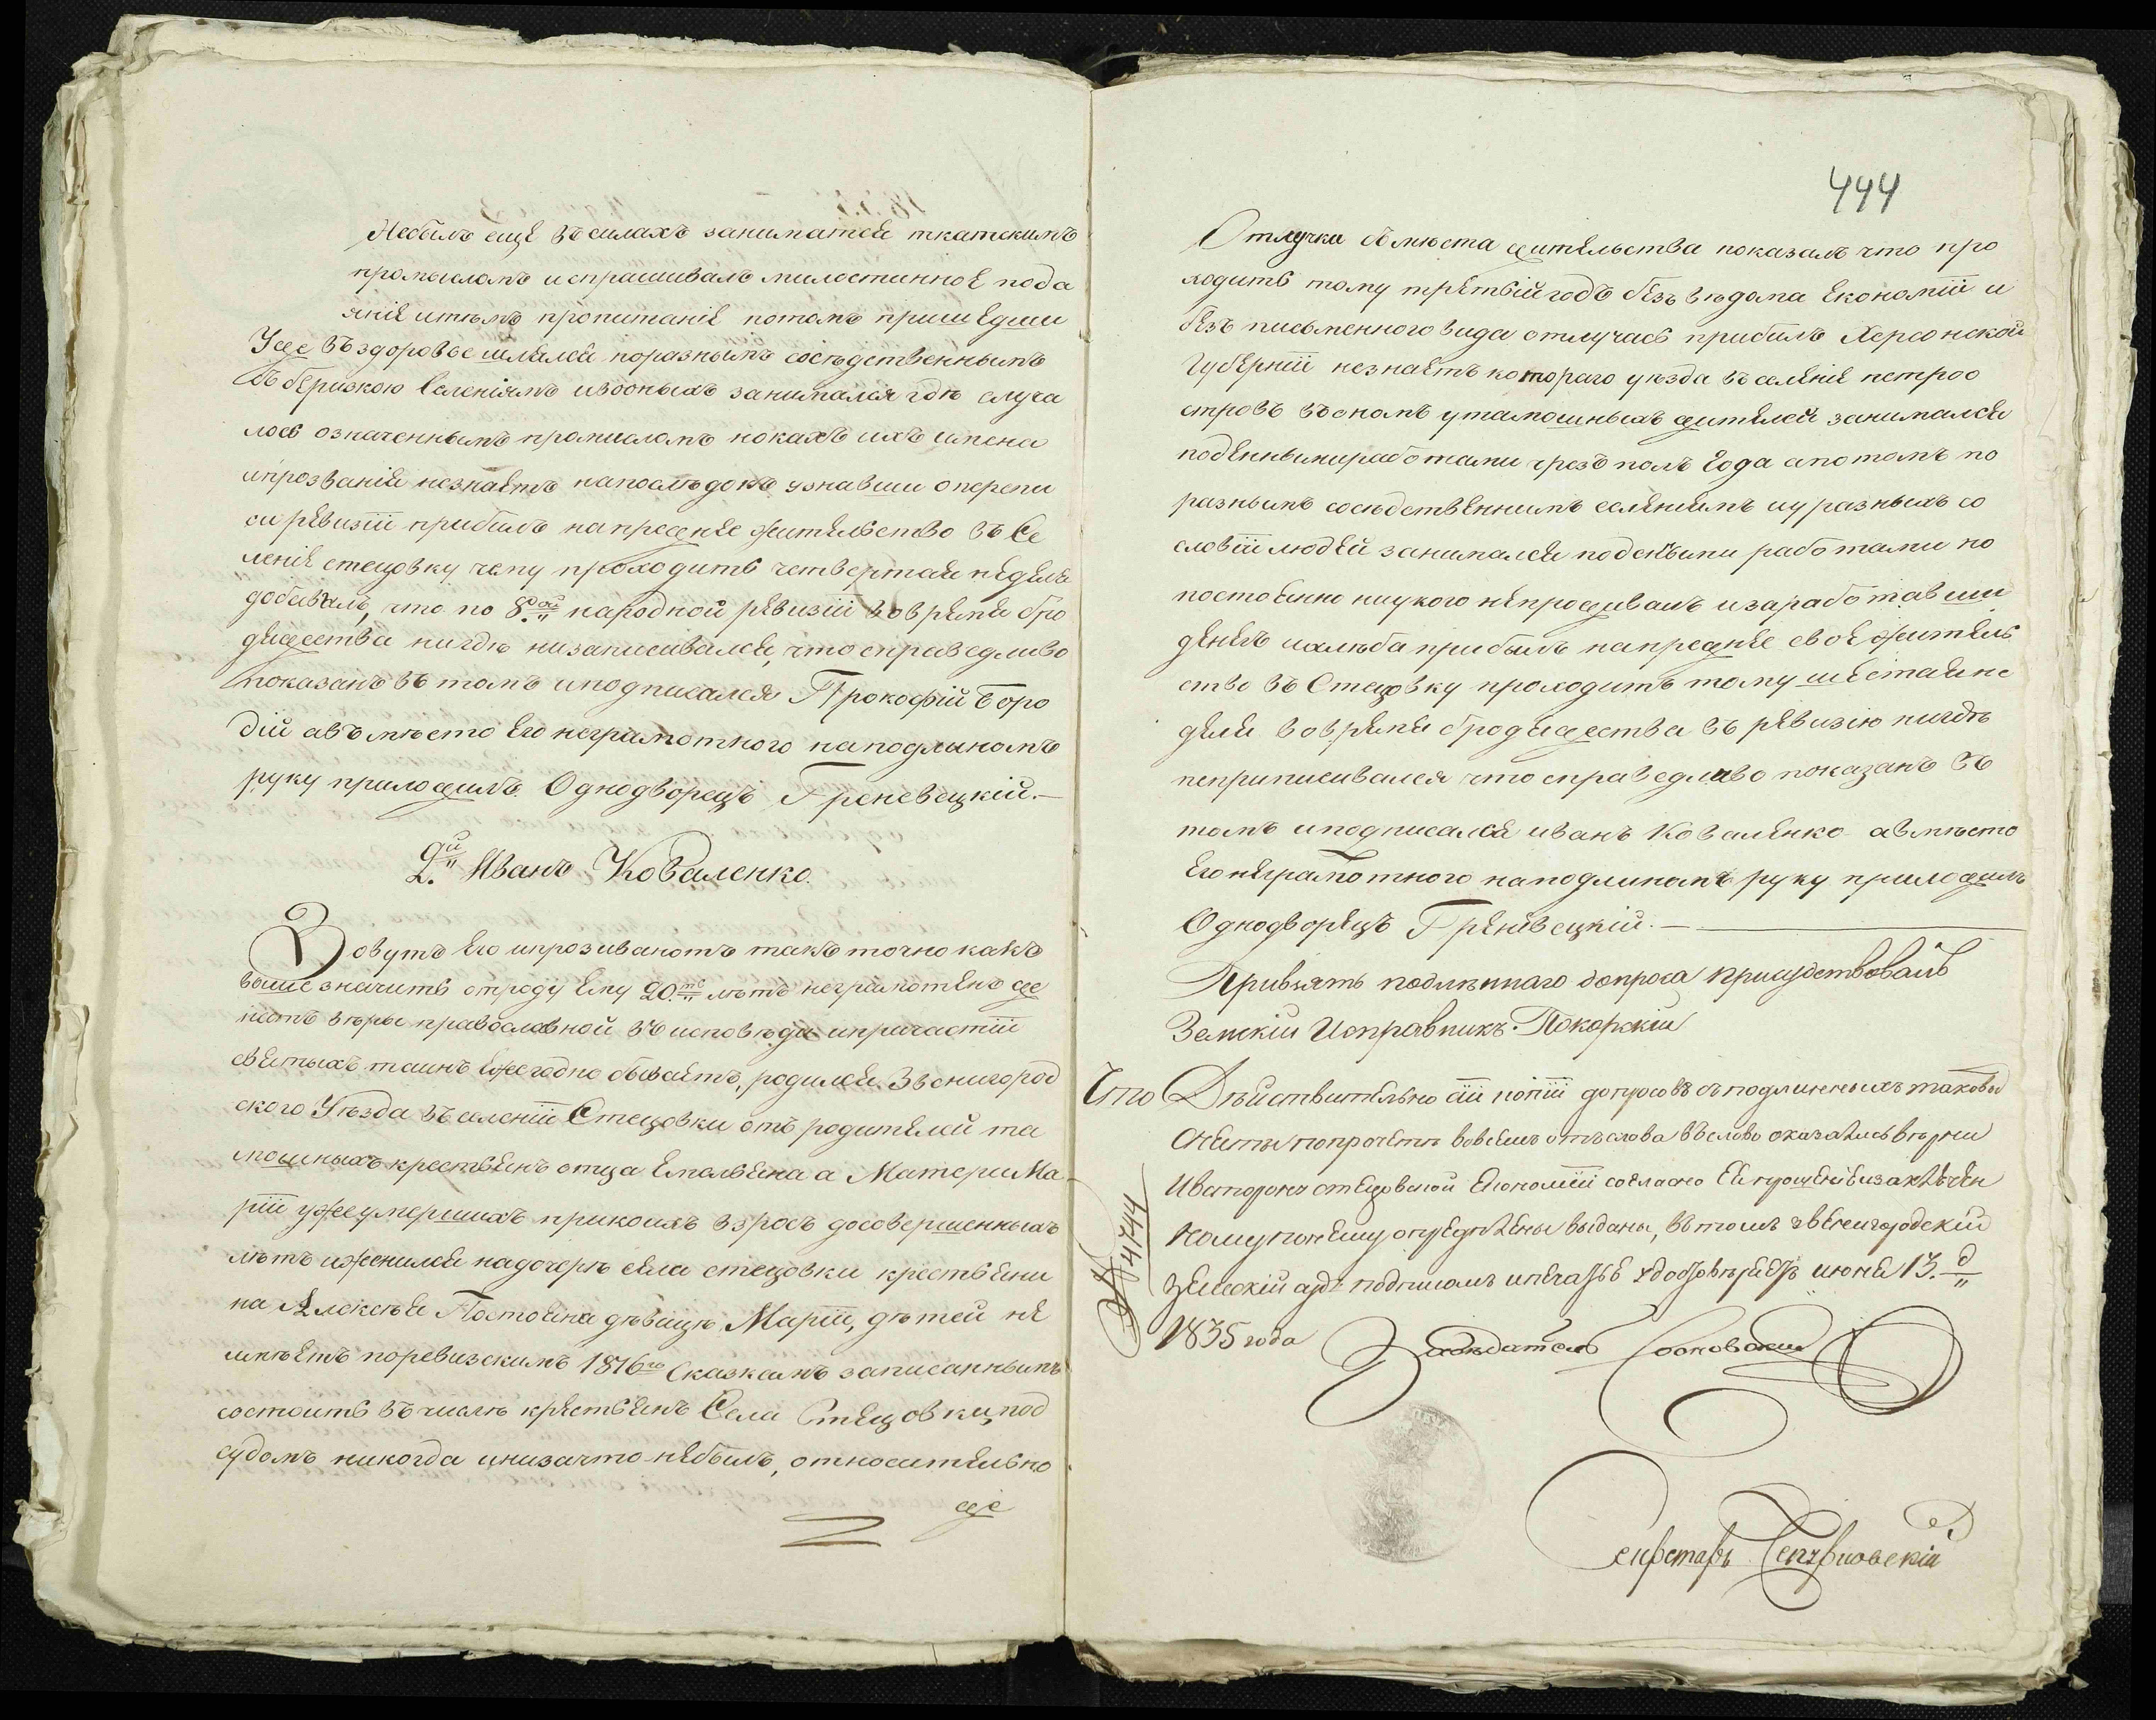 Небылъ еще въ силахъ заниматся ткатскимъ
промысломъ испрашивалъ милостинное пода
яніе итемъ пропитаніе потомъ пришедши
Уже въ здоровье шлялся поразнымъ сосѣдственнымъ
съ беризкою Селеніямъ ивооныхъ занимался гдѣ случа
лось означеннымъ промисломъ нокахъ ихъ имена
ипрозванія незнаетъ напослѣдокъ узнавши оперепи
си ревизіи прибылъ напрежнее жительство въ Се
леніе стецовку чему проходитъ четвертая неделя
добавилъ, что по 8ой народной ревизіи вовремя бро
дяжества нигдѣ низаписывался, что справедливо
показанъ въ томъ иподписался Прокофій Боро
дій авъ мѣсто Его неграмотного наподлиномъ
руку приложилъ Однодворецъ Греневецкій.—
2.й Иванъ Коваленко.
Зовутъ Его ипрозиваютъ такъ точно какъ
выше значитъ отроду Ему 20.ть лѣтъ неграмотенъ же
натъ вѣры православной въ исповѣди ипричастіи
святыхъ таинъ Ежегодно бываетъ, родился Звенигород
ского Уѣзда въ селеніи Стецовки отъ родителей та
мошныхъ крестьянъ отца Емельяна а Матери Ма
ріи ужеумершихъ прикоихъ взросъ досовершенныхъ
лѣтъ иженился надочерѣ села стецовки крестьяни
на Алексѣя Постояна дѣвицѣ Маріи, дѣтей не
имѣетъ поревизскимъ 1816го Сказкамъ записаннымъ
состоитъ въ числѣ крестьянъ Села Стецовки, под
судомъ никогда инизачто небылъ, относительно
же
444
Отлучки съ мѣста жительства показалъ что про
ходитъ тому третьій годъ безъ вѣдома Економіи и
безъ письменного вида отлучась прибылъ Херсонской
Губерніи незнаетъ котораго уѣзда въ селеніе петроо
стровъ въ ономъ утамошныхъ жителей занимался
поденнымиработами чрезъ полъ Года апотомъ по
разнымъ сосѣдственнымъ селеніямъ иуразныхъ со
словіи людей занимался поденными работами но
постоянно ниукого непроживалъ изаработавши
денегъ ихлѣба прибылъ напрежнее свое жительь
ство въ Стецовку проходитъ тому шестая не
деля вовремя бродяжества въ ревизію нигдѣ
неприписивался что справедливо показанъ въ
томъ иподписался иванъ Коваленко авмѣсто
Его неграмотного наподлиномъ руку приложилъ
Однодворецъ Греневецкій.—
Привзять подлѣннаго допроса присудствовалъ
Земскій Исправникъ Покорскій
Что Дѣйствительно сіи копіи допросовъ съ подлинныхъ таковы
сняты попрочетѣ вовсемъ отъ слова въ слово оказались вѣрни
Ивсторону стецовской Економіи согласно Ея прошенія
кому выданы, въ томъ звенигородскій
Земскій судъ подписомъ ипечатью удостовѣряетъ июня 13.д
1835 года
№ 4744
Засѣдатель Сосновскій
Секретарь